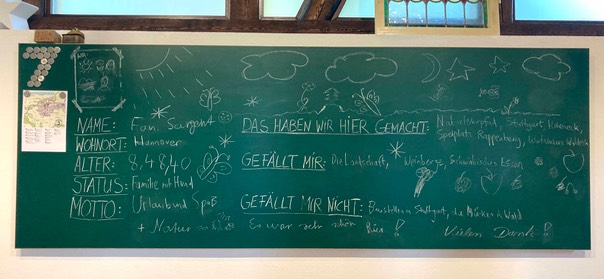 7
NAME: Fam. Sargent
WOHNORT: Hannover
ALTER: 8, 4 8, 40
STATUS: Familie mit Hund
MOTTO: Urlaub und Spaß
+ Natur
DAS HABEN WIR HIER GEMACHT: Naturlehrpfad, Stuttgart,
Spielplatz
GEFÄLLT MIR: Die Landschaft, Weinberge, Schwäbisches Essen
GEFÄLLT MIR NICHT: Baustellen in Stuttgart, die Mücken im Wald
Es war sehr schön hier!
Vielen Dank!